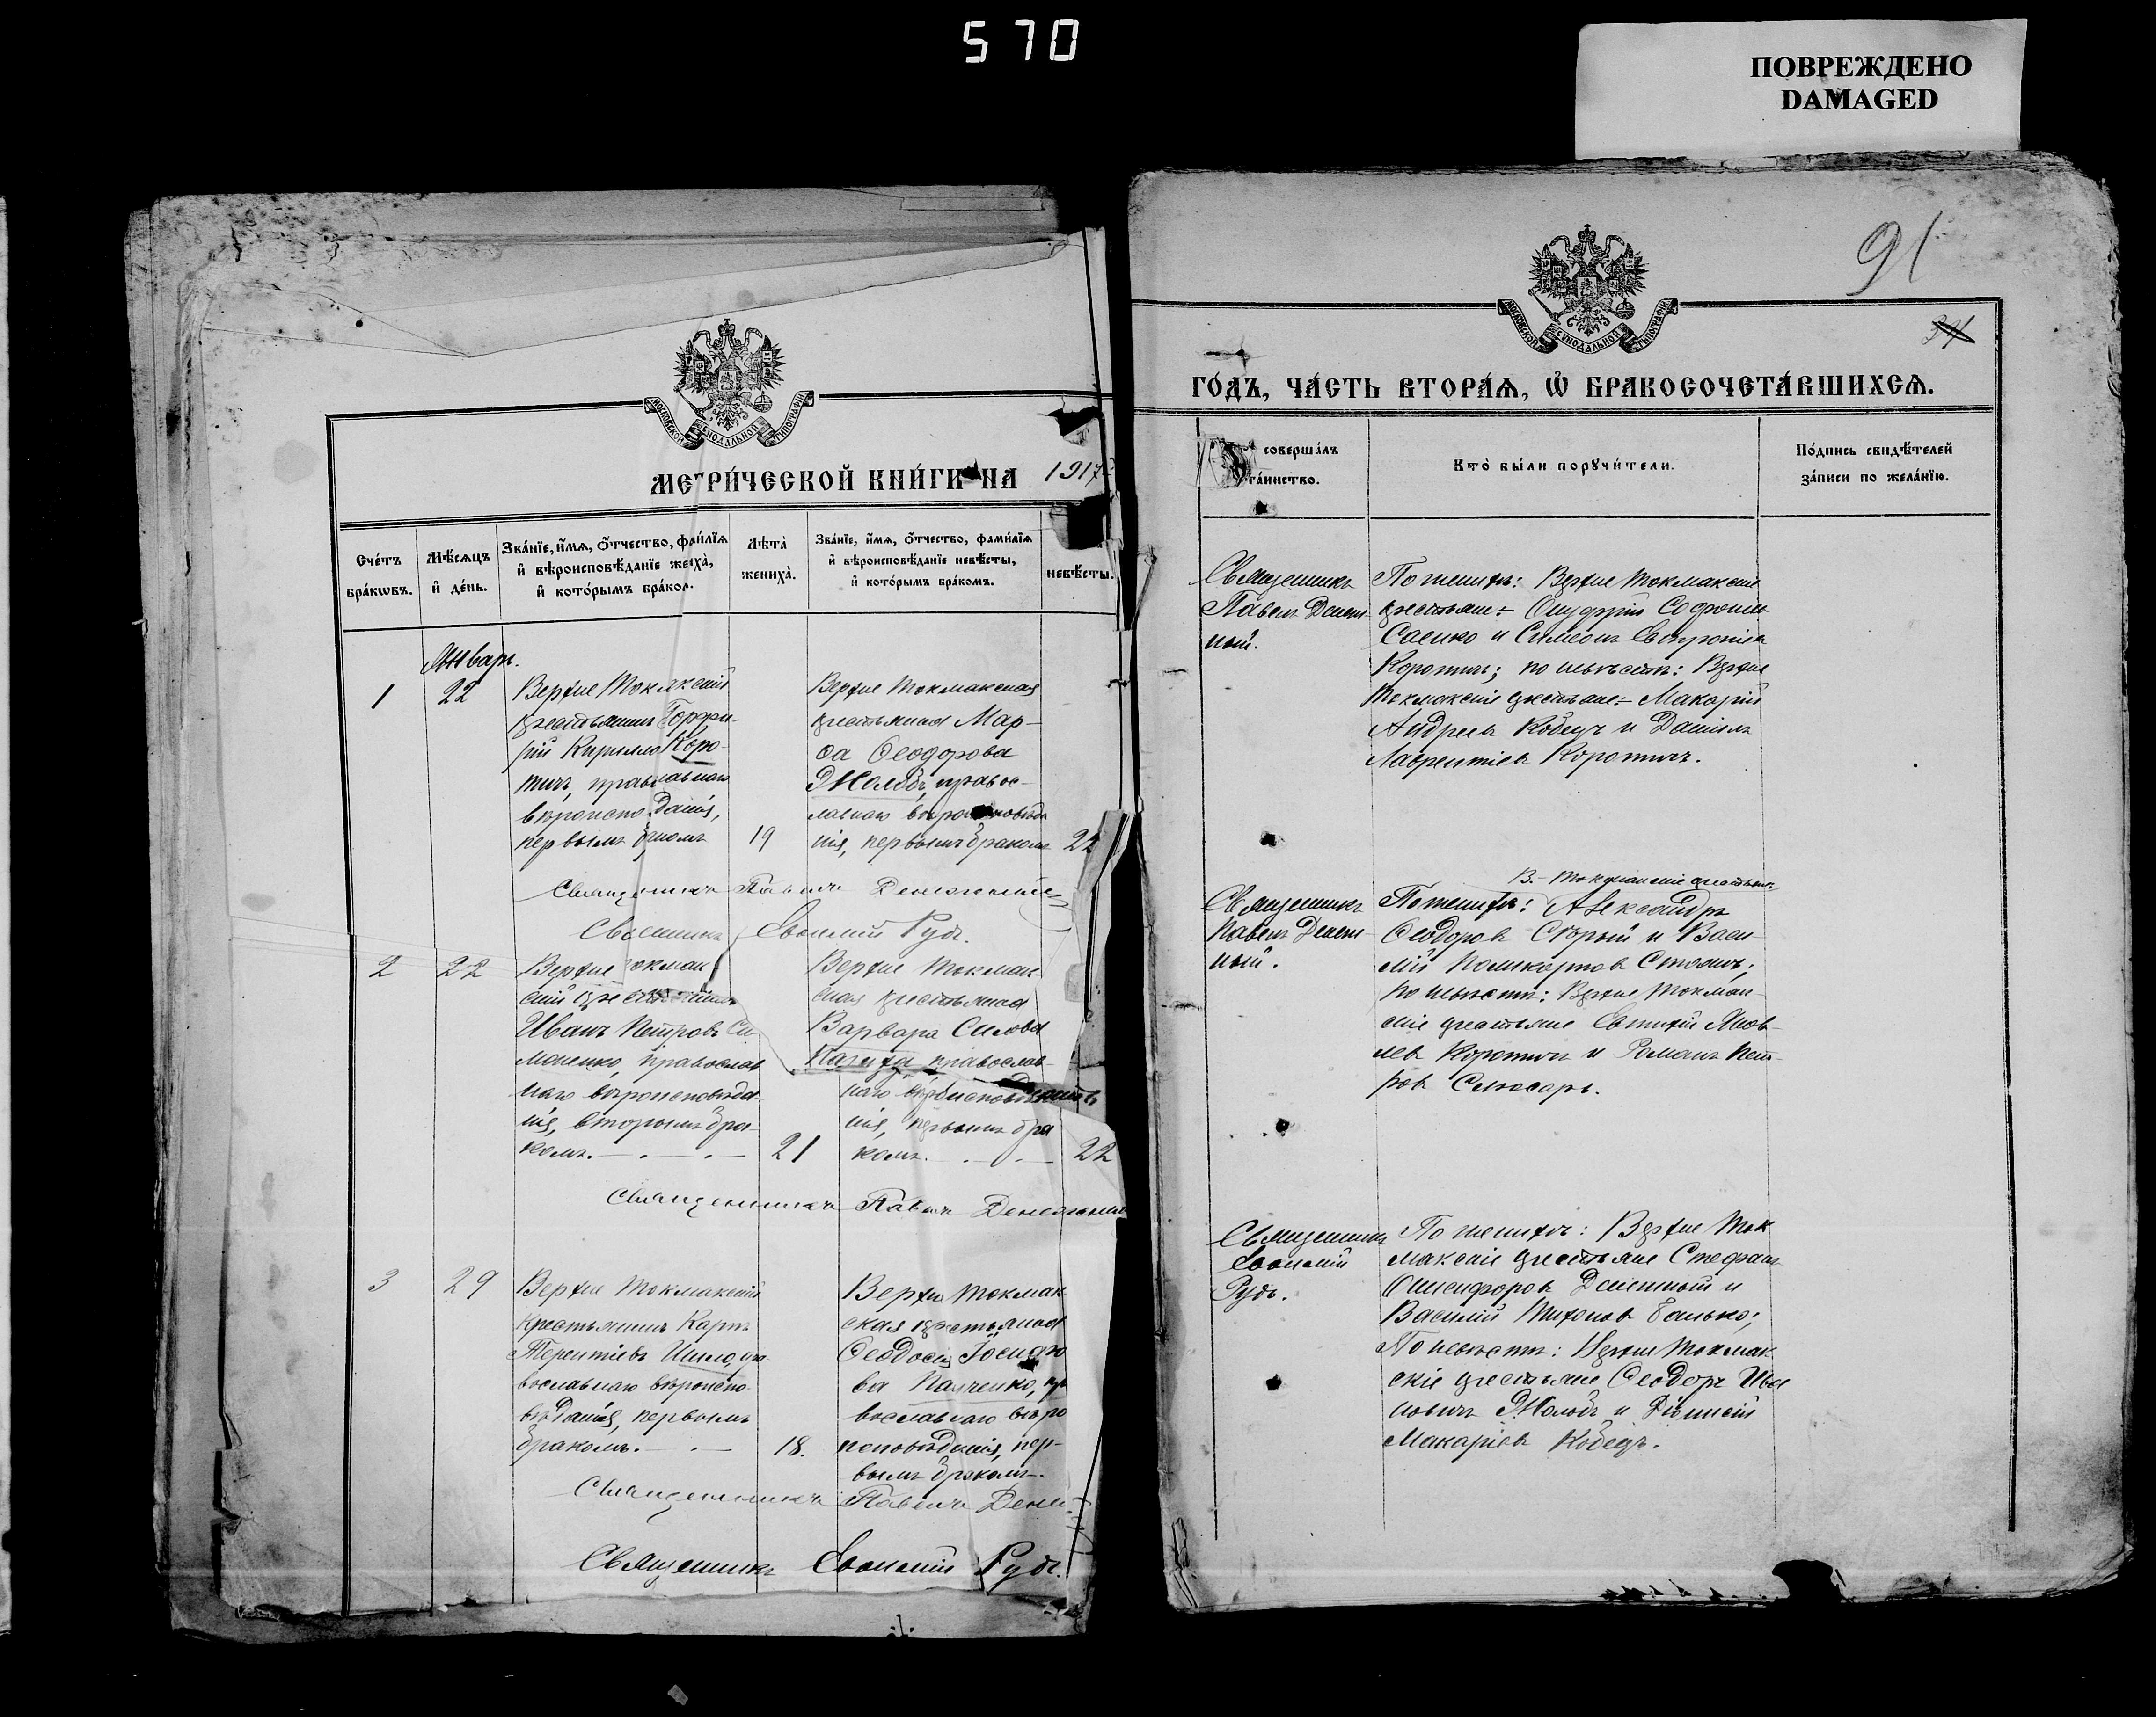 570
ПОВРЕЖДЕНО
DAMAGED
МОСКОВСКОЙ СѴНОДАЛЬНОЙ ТИПОГРАФІИ
МЕТРИ́ЧЕСКОЙ КНИ́ГИ НА 1917
Сче́тъ бра́кѡвъ.
Мѣ́сяцъ и҆ де́нь.
Зва́нїе, и҆́мѧ, ѻ҆́тчество, фами́лїѧ
и҆ вѣроисповѣ́данїе жениха̀,
и҆ кото́рымъ бра́комъ.
Лѣта̀
жениха̀.
Зва́нїе, и҆́мѧ, ѻ҆́тчество, фами́лїѧ
и҆ вѣроисповѣ́данїе невѣ́сты,
и҆ кото́рымъ бра́комъ.
невѣ́сты.
Январь.
1
22
Верхне Токмакскій
крестьянинъ
рій Кирилло Коро-
тичъ, православнаго
вѣроисповѣданія,
первымъ бракомъ
19
Верхне Токмакская
крестьянка Мар-
ѳа Ѳеодорова
Жолобъ, правос-
лавнаго вѣроисповѣда
нія, первымъ бракомъ
22
Священникъ Павелъ
Священникъ Евѳимій Рудь.
2
22
Верхне Токмак
скій крестьянинъ
Иванъ Петровъ Си
моненко, православ
наго вѣроисповѣда
нія, вторымъ бра-
комъ.
21
Верхне Токмак
ская крестьянка
Варвара Силова
православ-
наго вѣроисповѣда
нія, первымъ бра
комъ.
22
Священникъ Павелъ
3
29
Верхне Токмакскій
крестьянинъ Карпъ
Терентіевъ
вославнаго вѣроиспо-
вѣданія, первымъ
бракомъ.
18.
Верхне Токмак
ская крестьянка
Ѳеодосія Іосифо
ва Панченко, пра
вославнаго вѣро
исповѣданія, пер-
вымъ бракомъ.
Священникъ Павелъ
Священникъ Евѳимій Рудь.
91
34
МОСКОВСКОЙ СѴНОДАЛЬНОЙ ТИПОГРАФІИ
ГО́ДЪ, ЧА́СТЬ ВТОРА́Ѧ, Ѽ БРАКОСОЧЕТА́ВШИХСѦ.
соверша́лъ
та́инство.
Кто̀ бы́ли порꙋчи́тели.
По́дпись свидѣ́телей
за́писи по жела́нїю.
Священникъ
Павелъ
ный.
По женихѣ: Верхне Токмакскіе
крестьяне: Онуфрій Софоніевъ
Саенко и Симеонъ
Коротичъ; по невѣстѣ: Верхне
Токмакскіе крестьяне: Макарій
Андреевъ Кобецъ и Даніилъ
Лаврентіевъ Коротичъ.
Священникъ
Павелъ
ный.
В.-Токмакскіе крестьяне
По женихѣ: Александръ
Ѳеодоровъ Сѣрый и Васи-
лій Поликарповъ
по невѣстѣ: Верхне Токмак-
скіе крестьяне Евтихій Яков-
левъ Коротичъ и Романъ Пет-
ровъ Слюсарь.
Священникъ
Евѳимій
Рудь.
По женихѣ: Верхне Ток
макскіе крестьяне Стефанъ
Онисифоровъ и
Василій Тихоновъ
По невѣстѣ: Верхне Токмак
скіе крестьяне Ѳеодоръ Ива
новичъ Жолобъ и Діонисій
Макаріевъ Кобецъ.